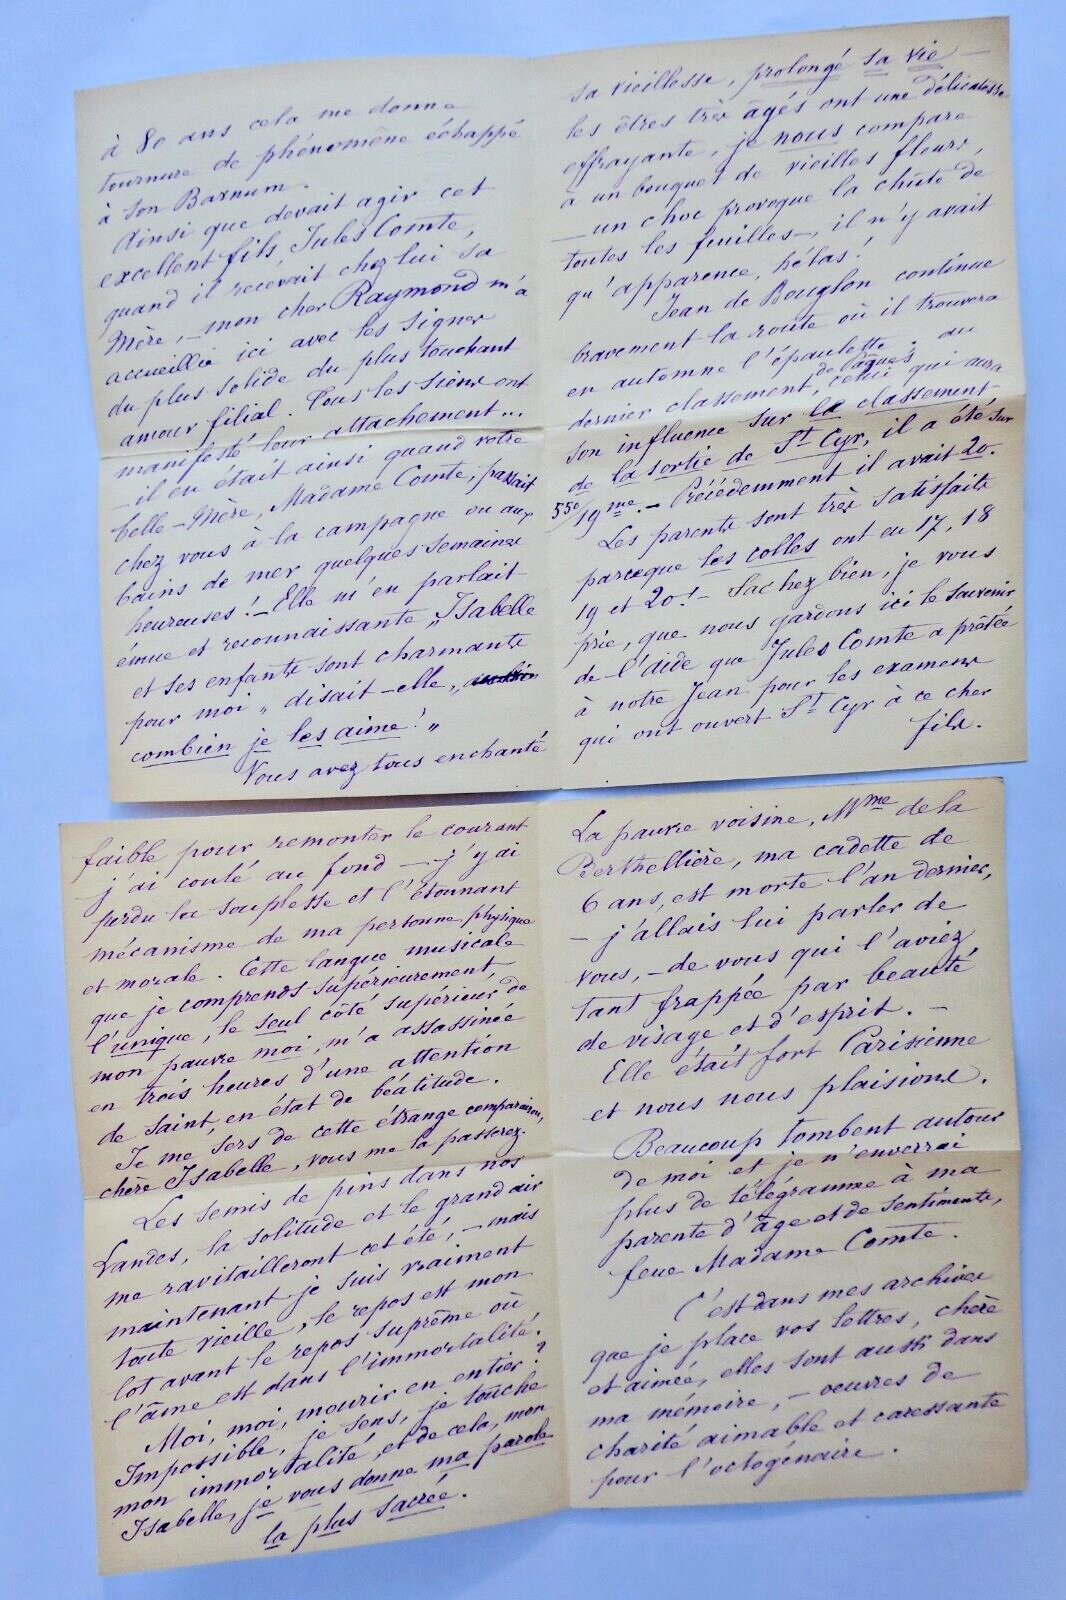 à 80 ans cela me donne
tournure de phénomène échappé
à son Barnum.
Ainsi que devait agir cet
excellent fils, Jules Comte,
quand il recevait chez lui sa
Mère, — mon cher Raymond m'a
accueillie ici avec les signes
du plus solide du plus touchant
amour filial. Tous les siens ont
manifesté leur attachement...
— il en était ainsi quand votre
belle-Mère, Madame Comte, passait
chez vous à la campagne ou aux
bains de mer quelques semaines
heureuses! — Elle m'en parlait
émue et reconnaissante, „Isabelle
et ses enfants sont charmants
pour moi „ disait-elle, „
combien je les aime! „
Vous avez tous enchanté
sa vieillesse, prolongé sa vie —
les êtres très âgés ont une délicatesse
effrayante, je nous compare
à un bouquet de vieilles fleurs,
— un choc provoque la chûte de
toutes les feuilles —, il n'y avait
qu'apparence, hélas!
Jean de Bouglon continue
bravement la route où il trouvera
en automne l'épaulette. au
dernier classement, de Pâques celui qui aura
son influence sur le classement
de la sortie de St Cyr, il a été sur
550/19me. — Précédemment il avait 20.
Les parents sont très satisfaits
parceque les colles ont eu 17, 18
19 et 20! — Sachez bien, je vous
prie, que nous gardons ici le souvenir
de l'aide que Jules Comte a prêtée
à notre Jean pour les examens
qui ont ouvert St Cyr à ce cher
fils.
faible pour remonter le courant
j'ai coulé au fond — j'y ai
perdu la souplesse et l'étonnant
mécanisme de ma personne, physique
et morale. Cette langue musicale
que je comprends supérieurement
l'unique, le seul côté supérieur de
mon pauvre moi, m'a assassinée
en trois heures d'une attention
de Saint, en état de béatitude.
Je me sers de cette étrange comparaison,
chère Isabelle, vous me la passerez.
Les semis de pins dans nos
Landes, la solitude et le grand air
me ravitailleront cet été, — mais
maintenant je suis vraiment
toute vieille, le repos est mon
lot avant le repos suprême où
l'âme est dans l'immortalité.
Moi, moi, mourir en entier?
Impossible, je sens, je touche
mon immortalité, et de cela, mon
Isabelle, je vous donne ma parole
la plus sacrée.
La pauvre voisine, Mme de la
Berthellière, ma cadette de
6 ans, est morte l'an dernier,
— j'allais lui parler de
vous, — de vous qui l'aviez
tant frappée par beauté
de visage et d'esprit. —
Elle était fort Parisienne
et nous nous plaisions.
Beaucoup tombent autour
de moi et je n'enverrai
plus de télégramme à ma
parente d'âge et de sentiments,
feue Madame Comte.
C'est dans mes archives
que je place vos lettres, chère
et aimée, elles sont aussi dans
ma mémoire, — œuvres de
charité aimable et caressante
pour l'octogénaire.